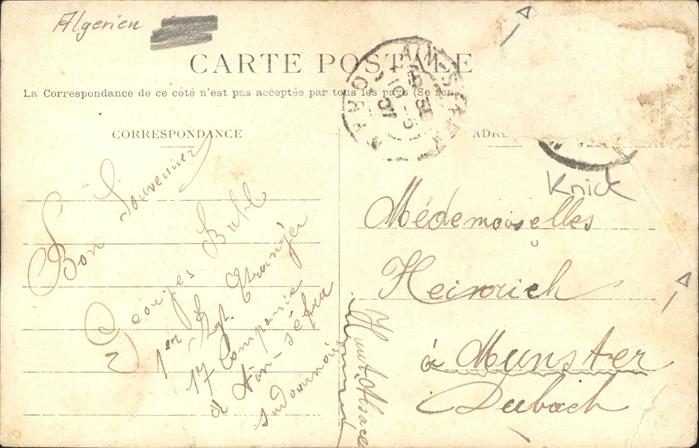 Algerien
CARTE POSTALE
La Correspondance de ce côté n'est pas acceptée par tous les pays (Se ren
CORRESPONDANCE
ADRE
Knick
Bon Souvenier
Georges Buhl
1er Rgt Etranger
17 Companie
à Ain-séfra
Médemoiselles
Heinrich
à Munster
Haut Alsace